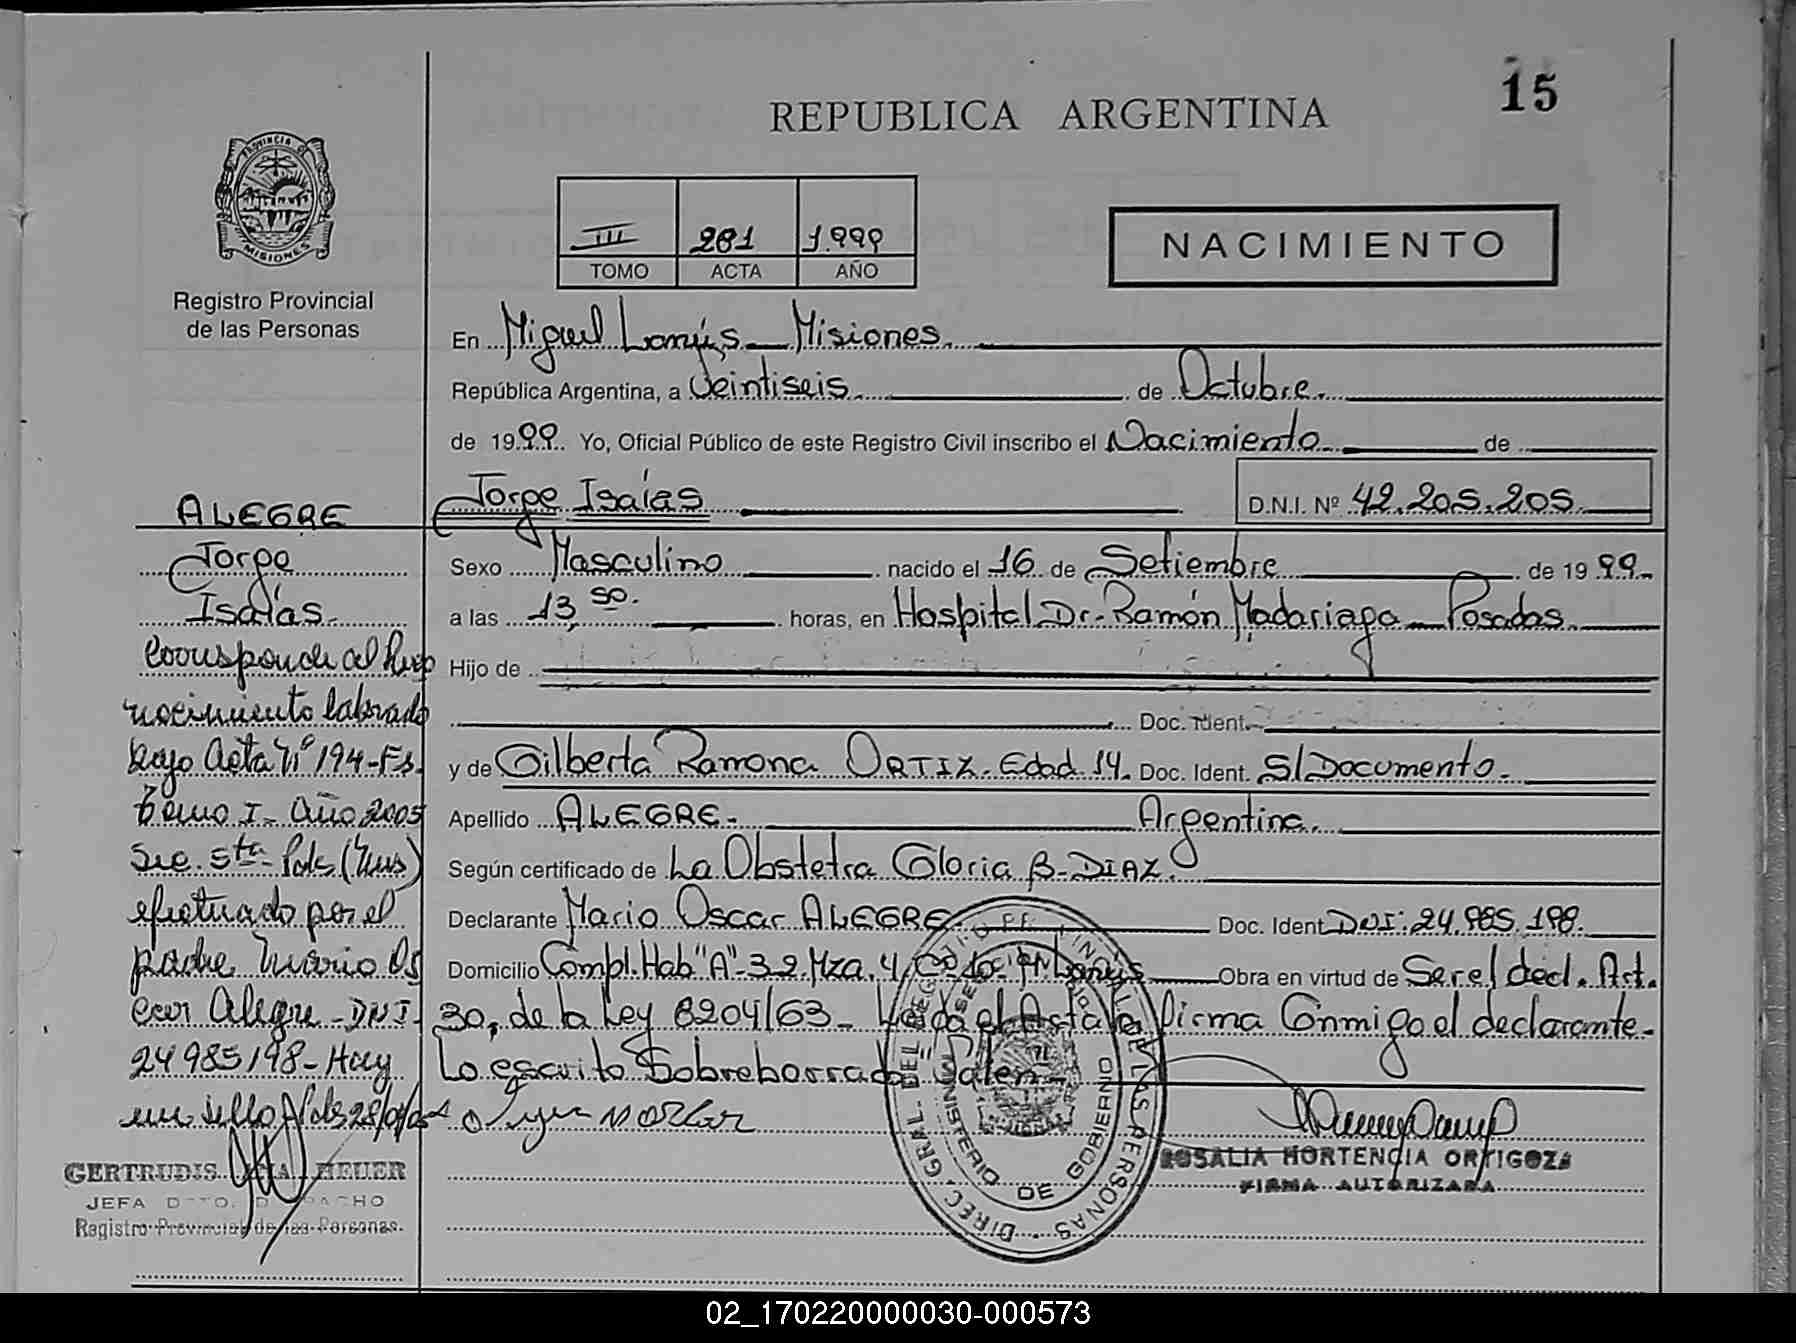 15
REPUBLICA ARGENTINA
PROVINCIA DE
MISIONES
Registro Provincial
de las Personas
III 281 1.999
TOMO ACTA AÑO
NACIMIENTO
En Miguel Lanús - Misiones.
República Argentina, a Veintiseis. de Octubre.
de 1999. Yo, Oficial Público de este Registro Civil inscribo el Nacimiento de
Jorge Isaías D.N.I. Nº 42.205.205.
Sexo Masculino nacido el 16 de Setiembre de 1999.
a las 13,50. horas, en Hospital Dr. Ramón Madariaga - Posadas.
Hijo de
Doc. Ident.
y de Gilberta Ramona ORTIZ. Edad 14. Doc. Ident. S/Documento.
Apellido ALEGRE. Argentina.
Según certificado de La Obstetra Gloria B. DIAZ.
Declarante Mario Oscar ALEGRE Doc. Ident DNI: 24.985.198.
Domicilio Compl. Hab "A" 32. Mza. 4, Lanús Obra en virtud de Ser el decl. Art.
30, de la Ley 8204/63 - Leída el Acta la firma Conmigo el declarante.
Lo escrito Sobreborrado Valen.
ROSALIA HORTENCIA ORTIGOZA
FIRMA AUTORIZADA
DIREC. GRAL. DEL REGISTRO PROVINCIAL DE LAS PERSONAS
MINISTERIO DE GOBIERNO
ALEGRE
Jorge
Isaías.
Corresponde al Reco
nocimiento labrado
bajo Acta Nº 194-Fs.
Tomo I - Año 2005
Sec. 5ta Pdas (Mnes)
efectuado por el
padre Mario Os
car Alegre - DNI.
24985198 - Hay
un sello
GERTRUDIS HEUER
JEFA DPTO. DESPACHO
Registro Provincial de las Personas.
02_170220000030-000573